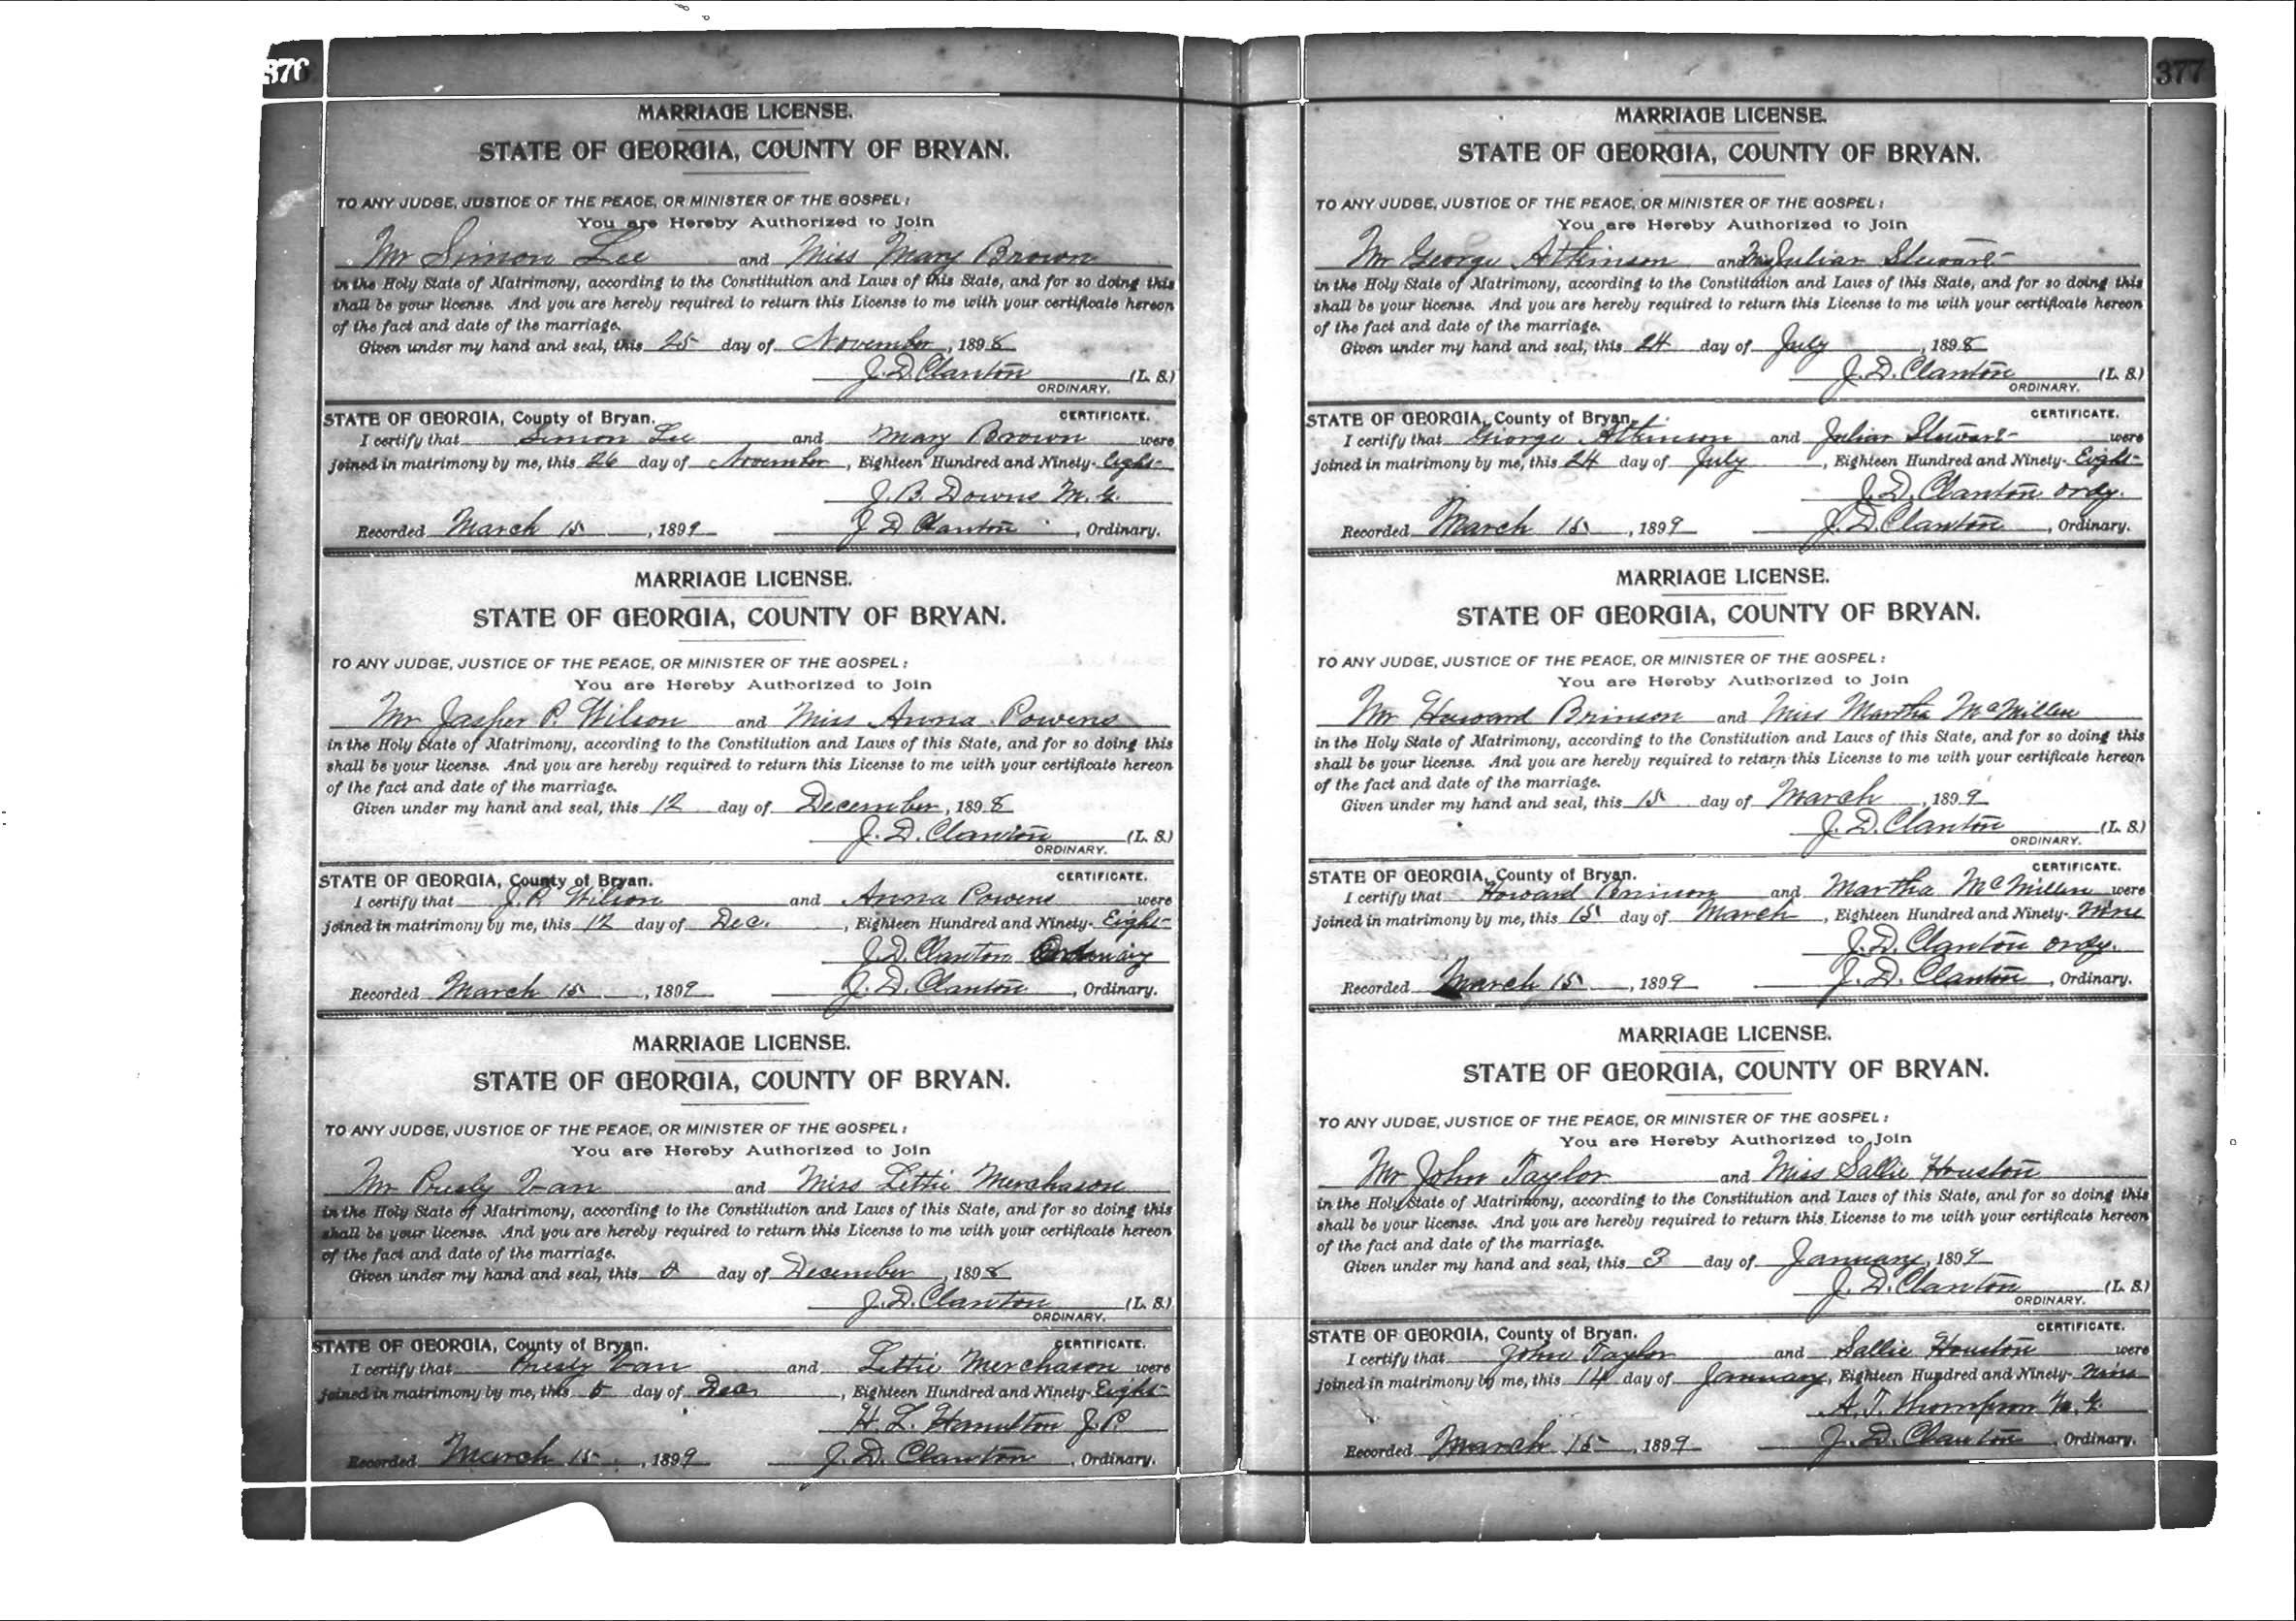 376
MARRIAGE LICENSE.
STATE OF GEORGIA, COUNTY OF BRYAN.
TO ANY JUDGE, JUSTICE OF THE PEACE, OR MINISTER OF THE GOSPEL:
You are Hereby Authorized to Join
Mr Simon Lee and Miss Mary Brown
in the Holy State of Matrimony, according to the Constitution and Laws of this State, and for so doing this
shall be your license. And you are hereby required to return this License to me with your certificate hereon
of the fact and date of the marriage.
Given under my hand and seal, this 25 day of November, 1898
J. D. Clanton (L. S.)
ORDINARY.
STATE OF GEORGIA, County of Bryan. CERTIFICATE.
I certify that Simon Lee and Mary Brown were
joined in matrimony by me, this 26 day of November, Eighteen Hundred and Ninety-Eight
J. B. Downs M. G.
Recorded March 15, 1899 J D Clanton, Ordinary.
MARRIAGE LICENSE.
STATE OF GEORGIA, COUNTY OF BRYAN.
TO ANY JUDGE, JUSTICE OF THE PEACE, OR MINISTER OF THE GOSPEL:
You are Hereby Authorized to Join
Mr Jasper P. Wilson and Miss Anna Powens
in the Holy State of Matrimony, according to the Constitution and Laws of this State, and for so doing this
shall be your license. And you are hereby required to return this License to me with your certificate hereon
of the fact and date of the marriage.
Given under my hand and seal, this 12 day of December, 1898
J. D. Clanton (L. S.)
ORDINARY.
STATE OF GEORGIA, County of Bryan. CERTIFICATE.
I certify that J. P. Wilson and Anna Powens were
joined in matrimony by me, this 12 day of Dec., Eighteen Hundred and Ninety-Eight
J. D. Clanton Ordinary
Recorded March 15, 1899 J. D. Clanton, Ordinary.
MARRIAGE LICENSE.
STATE OF GEORGIA, COUNTY OF BRYAN.
TO ANY JUDGE, JUSTICE OF THE PEACE, OR MINISTER OF THE GOSPEL:
You are Hereby Authorized to Join
Mr Presly Van and Miss Lettie Merchason
in the Holy State of Matrimony, according to the Constitution and Laws of this State, and for so doing this
shall be your license. And you are hereby required to return this License to me with your certificate hereon
of the fact and date of the marriage.
Given under my hand and seal, this day of December, 1898
J. D. Clanton (L. S.)
ORDINARY.
STATE OF GEORGIA, County of Bryan. CERTIFICATE.
I certify that Presly Van and Lettie Merchason were
joined in matrimony by me, this 5 day of Dec, Eighteen Hundred and Ninety-Eight
H. L. Hamilton J. P.
Recorded March 15, 1899 J. D. Clanton, Ordinary.
377
MARRIAGE LICENSE.
STATE OF GEORGIA, COUNTY OF BRYAN.
TO ANY JUDGE, JUSTICE OF THE PEACE, OR MINISTER OF THE GOSPEL:
You are Hereby Authorized to Join
Mr George Atkinson and Miss Juliar Stewart
in the Holy State of Matrimony, according to the Constitution and Laws of this State, and for so doing this
shall be your license. And you are hereby required to return this License to me with your certificate hereon
of the fact and date of the marriage.
Given under my hand and seal, this 24 day of July, 1898
J. D. Clanton (L. S.)
ORDINARY.
STATE OF GEORGIA, County of Bryan. CERTIFICATE.
I certify that George Atkinson and Juliar Stewart were
joined in matrimony by me, this 24 day of July, Eighteen Hundred and Ninety-Eight
J. D. Clanton ordy.
Recorded March 15, 1899 J. D. Clanton, Ordinary.
MARRIAGE LICENSE.
STATE OF GEORGIA, COUNTY OF BRYAN.
TO ANY JUDGE, JUSTICE OF THE PEACE, OR MINISTER OF THE GOSPEL:
You are Hereby Authorized to Join
Mr Howard Brinson and Miss Martha McMillen
in the Holy State of Matrimony, according to the Constitution and Laws of this State, and for so doing this
shall be your license. And you are hereby required to return this License to me with your certificate hereon
of the fact and date of the marriage.
Given under my hand and seal, this 15 day of March, 1899
J. D. Clanton (L. S.)
ORDINARY.
STATE OF GEORGIA, County of Bryan. CERTIFICATE.
I certify that Howard Brinson and Martha McMillen were
joined in matrimony by me, this 15 day of March, Eighteen Hundred and Ninety-Nine
J. D. Clanton ordy.
Recorded March 15, 1899 J. D. Clanton, Ordinary.
MARRIAGE LICENSE.
STATE OF GEORGIA, COUNTY OF BRYAN.
TO ANY JUDGE, JUSTICE OF THE PEACE, OR MINISTER OF THE GOSPEL:
You are Hereby Authorized to Join
Mr John Taylor and Miss Sallie Houston
in the Holy State of Matrimony, according to the Constitution and Laws of this State, and for so doing this
shall be your license. And you are hereby required to return this License to me with your certificate hereon
of the fact and date of the marriage.
Given under my hand and seal, this 3 day of January, 1899
J. D. Clanton (L. S.)
ORDINARY.
STATE OF GEORGIA, County of Bryan. CERTIFICATE.
I certify that John Taylor and Sallie Houston were
joined in matrimony by me, this 14 day of January, Eighteen Hundred and Ninety-Nine
A. T. Thompson M. G.
Recorded March 15, 1899 J. D. Clanton, Ordinary.